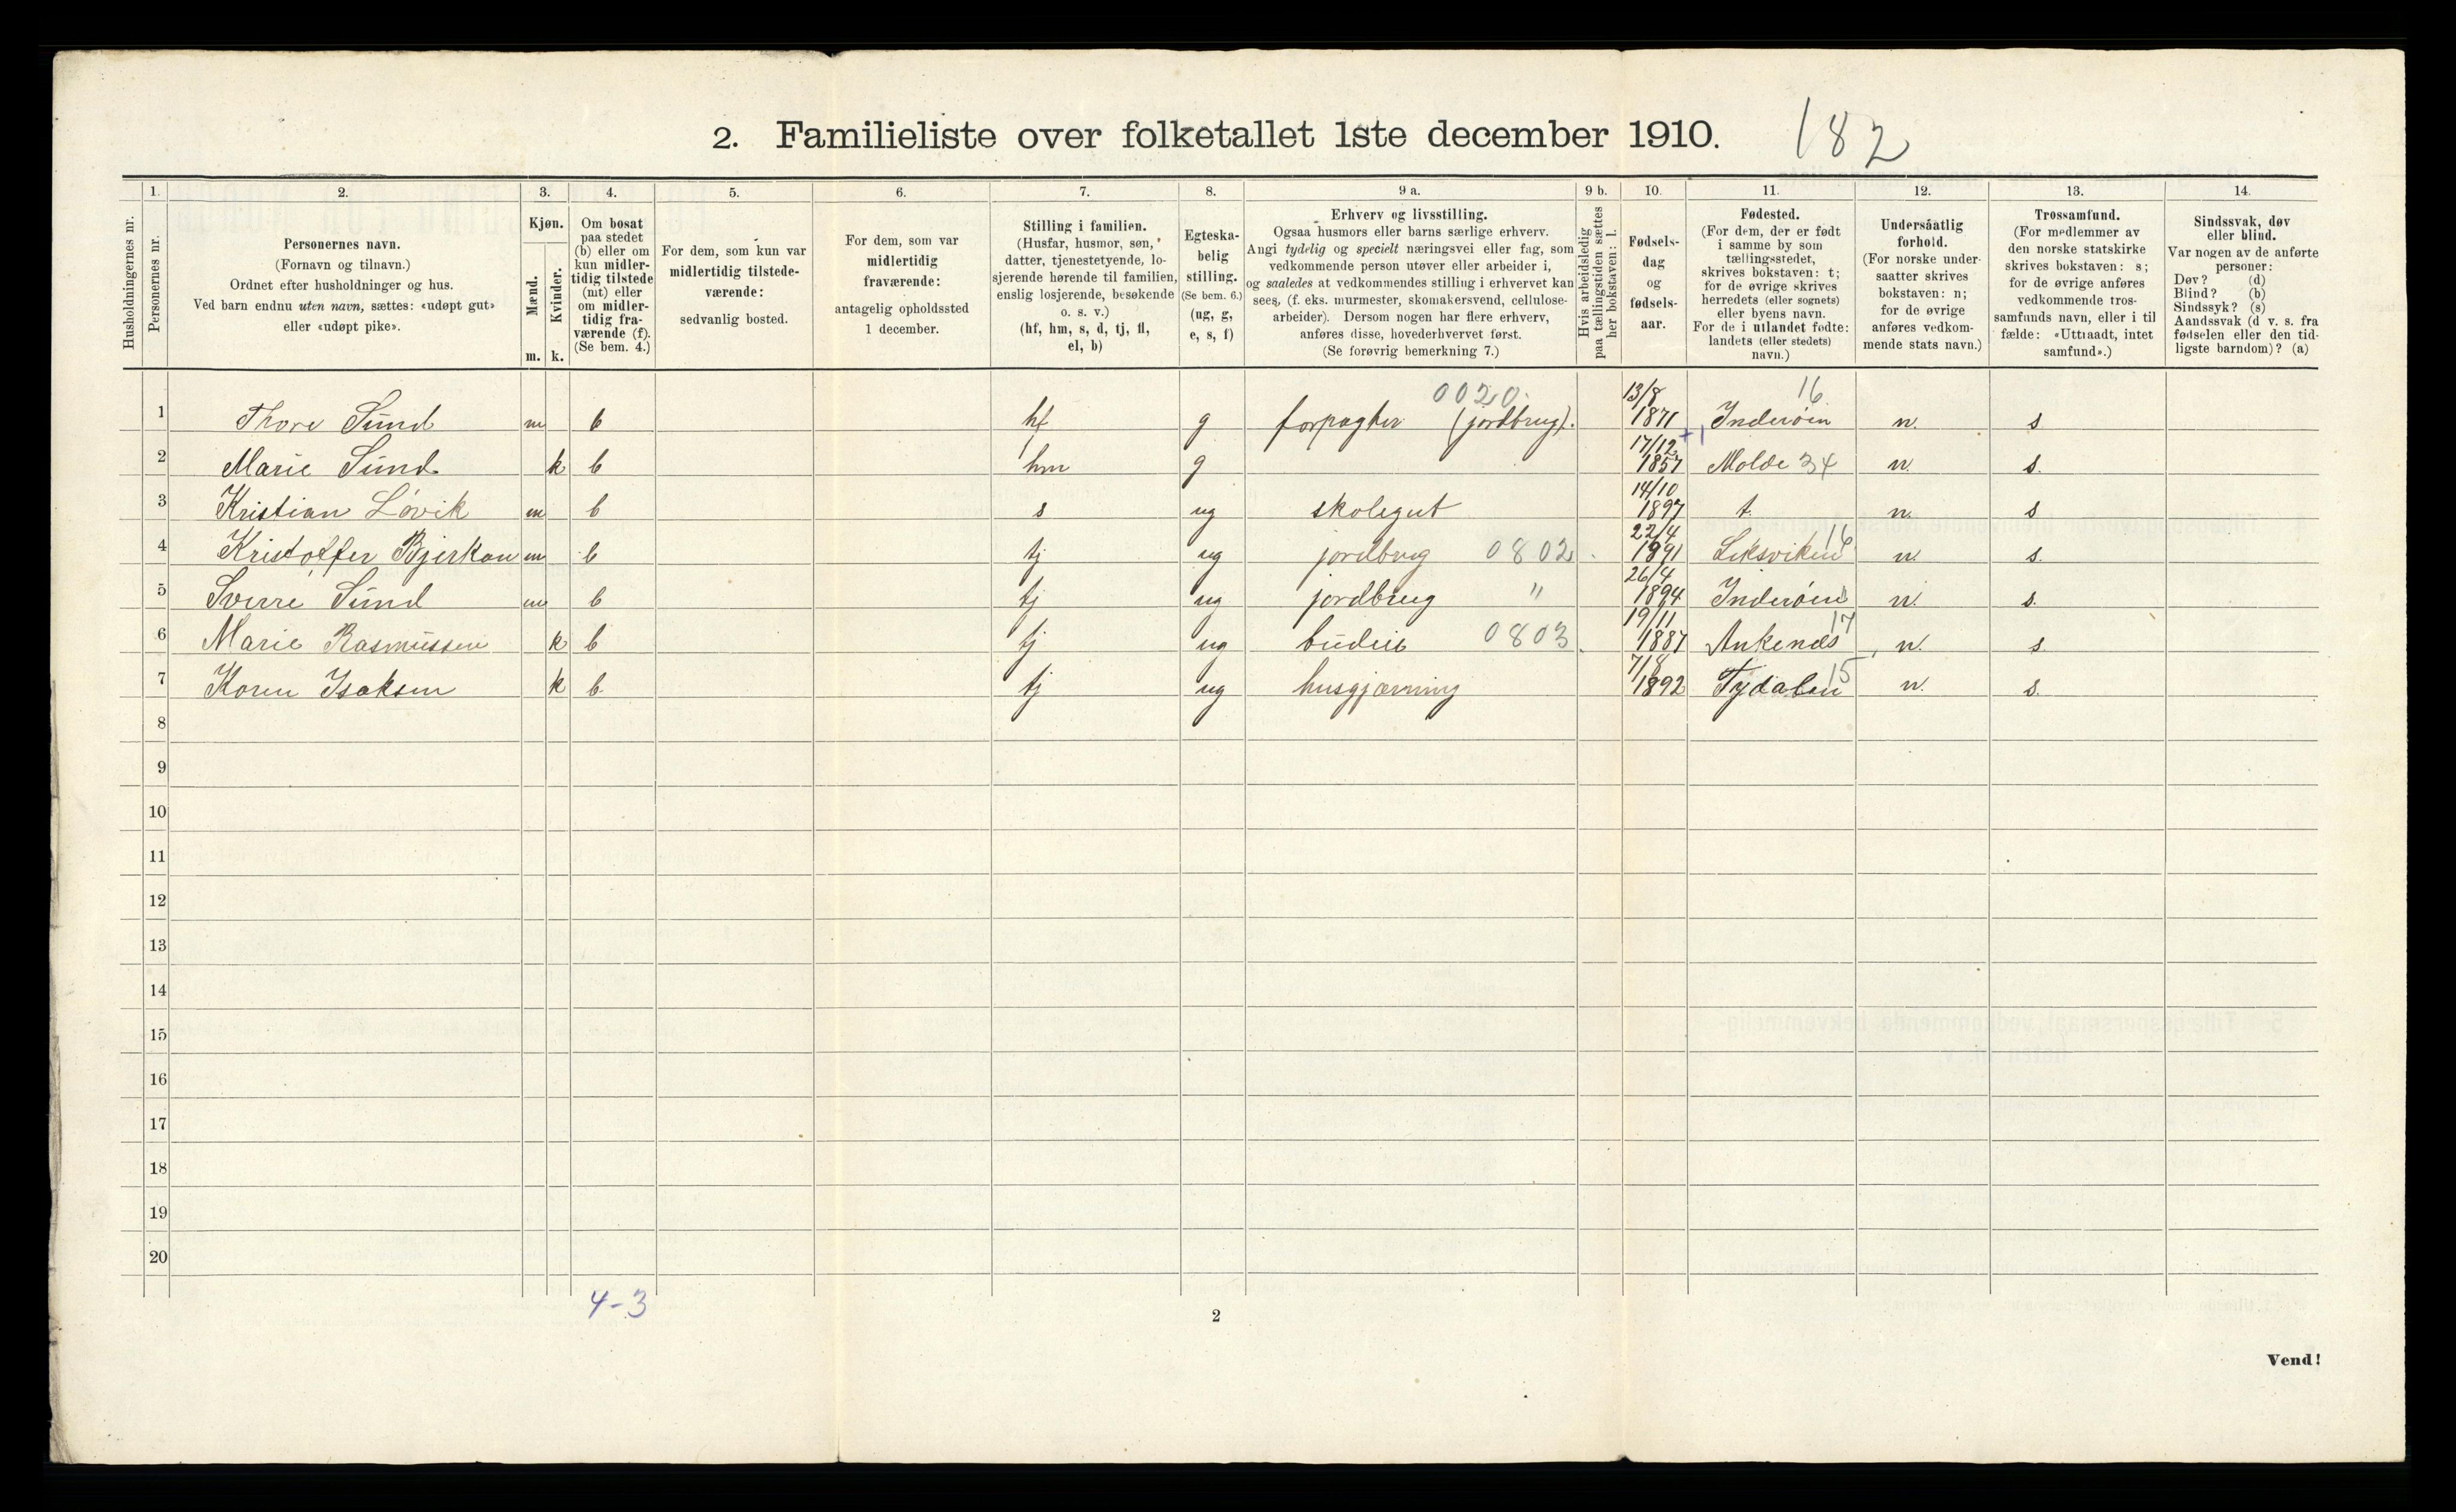 2. Familieliste over folketallet 1ste december 1910. 182
Husholdningernes nr.
1.
Personernes nr.
2.
Personernes navn.
(Fornavn og tilnavn.)
Ordnet efter husholdninger og hus.
Ved barn endnu uten navn, sættes: «udøpt gut»
eller «udøpt pike».
3.
Kjøn.
Mænd.
Kvinder.
m. k.
4.
Om bosat
paa stedet
(b) eller om
kun midler-
tidig tilstede
(mt) eller
om midler-
tidig fra-
værende (f).
(Se bem. 4.)
5.
For dem, som kun var
midlertidig tilstede-
værende:
sedvanlig bosted.
6.
For dem, som var
midlertidig
fraværende:
antagelig opholdssted
1 december.
7.
Stilling i familien.
(Husfar, husmor, søn,
datter, tjenestetyende, lo-
sjerende hørende til familien,
enslig losjerende, besøkende
o. s. v.)
(hf, hm, s, d, tj, fl,
el, b)
8.
Egteska-
belig
stilling.
(Se bem. 6.)
(ug, g,
e, s, f)
9 a.
Erhverv og livsstilling.
Ogsaa husmors eller barns særlige erhverv.
Angi tydelig og specielt næringsvei eller fag, som
vedkommende person utøver eller arbeider i,
og saaledes at vedkommendes stilling i erhvervet kan
sees, (f. eks. murmester, skomakersvend, cellulose-
arbeider). Dersom nogen har flere erhverv,
anføres disse, hovederhvervet først.
(Se forøvrig bemerkning 7.)
9 b.
Hvis arbeidsledig
paa tællingstiden sættes
her bokstaven: l.
10.
Fødsels-
dag
og
fødsels-
aar.
11.
Fødested.
(For dem, der er født
i samme by som
tællingsstedet,
skrives bokstaven: t;
for de øvrige skrives
herredets (eller sognets)
eller byens navn.
For de i utlandet fødte:
landets (eller stedets)
navn.)
12.
Undersåatlig
forhold.
(For norske under-
saatter skrives
bokstaven: n;
for de øvrige
anføres vedkom-
mende stats navn.)
13.
Trossamfund.
(For medlemmer av
den norske statskirke
skrives bokstaven: s;
for de øvrige anføres
vedkommende tros-
samfunds navn, eller i til
fælde: «Uttraadt, intet
samfund».)
14.
Sindssvak, døv
eller blind.
Var nogen av de anførte
personer:
Døv? (d)
Blind? (b)
Sindssyk? (s)
Aandssvak (d v. s. fra
fødselen eller den tid-
ligste barndom)? (a)
1 Thore Sund m b hf g forpagter (jordbrug). 0020. 13/8 1871 Inderøen 16 n. s
2 Marie Sund k b hm g 17/12 1857 Molde 34 n. s.
3 Kristian Løvik m b s ug skolegut 14/10 1897 t. n. s
4 Kristoffer Bjerkan m b tj ug jordbrug 0802 22/4 1891 Leksviken 16 n. s.
5 Sverre Sund m b tj ug jordbrug " 26/4 1894 Inderøen n. s.
6 Marie Rasmussen k b tj ug budeie 0803 19/11 1887 Ankenæs 17 n. s.
7 Koren Isaksen k b. tj ug husgjærning 7/8 1892 Tydalen 15 n. s.
8
9
10
11
12
13
14
15
16
17
18
19
20
4-3
2
Vend!